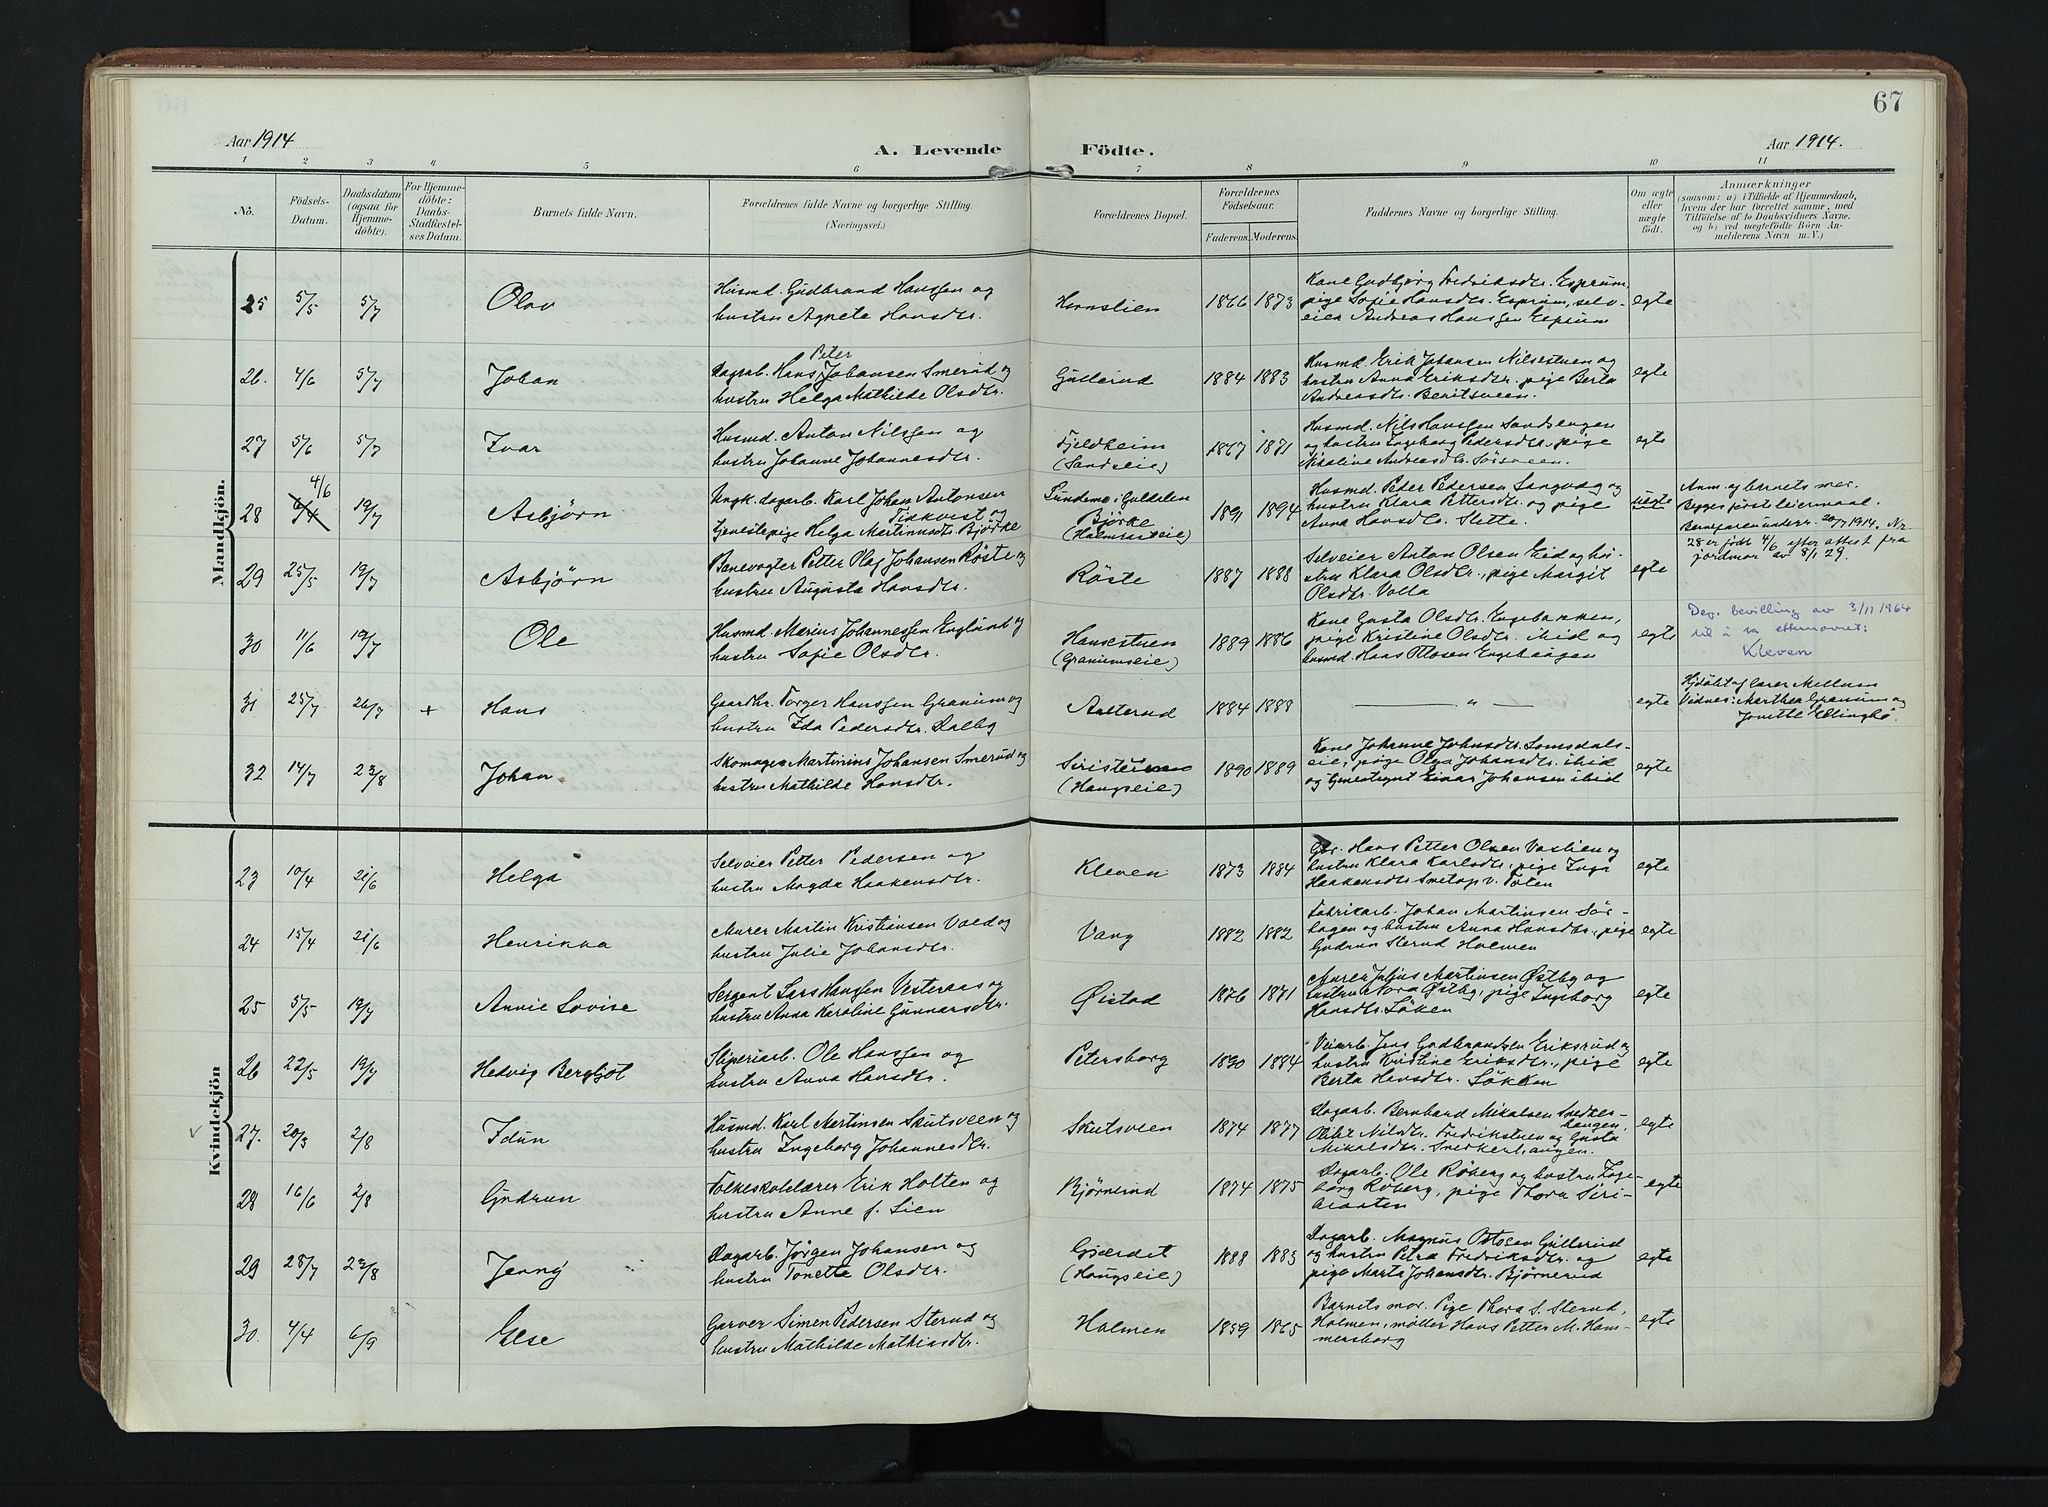 67
Aar 1914
A. Levende Födte.
Aar 1914.
1 2 3 4 5 6 7 8 9 10 11
No.
Födsels-Datum.
Daabsdatum (ogsaa for Hjemme-döbte).
For Hjemme-döbte: Daabs-Stadfæstel-ses Datum.
Barnets fulde Navn.
Forældrenes fulde Navne og borgerlige Stilling.
(Næringsvei.)
Forældrenes Bopæl.
Forældrenes Födselsaar.
Faderens. Moderens.
Faddernes Navne og borgerlige Stilling.
Om ægte eller uægte födt.
Anmærkninger
(saasom: a) i Tilfælde af Hjemmedaab, hvem der har forrettet samme, med Tilföielse af to Daabsvidners Navne. og b) ved uægtefödte Börn Anmelderens Navn m. V.)
Mandkjön.
25 5/5 5/7 Olav
Husmd. Gudbrand Hanssen og
hustru Agnete Hansdtr.
Hornslien 1866 1873
Kone Gudbjørg Fredriksdtr. Esprum,
pige Sofie Hansdtr. Esprum, selv-
eier Andreas Hanssen Esprum
egte
26. 4/6 5/7 Johan
Peter
Dagarb. Hans Johansen Smerud og
hustru Helga Mathilde Olsdtr.
Gullerud 1884 1883
Husmd. Erik Johansen Nilsestuen og
hustru Anna Eriksdtr. pige Berta
Andreasdtr. Beritsveen.
egte
27 5/6 5/7 Ivar
Husmd. Anton Nilssen og
hustru Johanne Johannesdtr.
Fjeldheim
(Sandseie)
1867 1871
Husmd. Nils Hanssen Sandsengen
og hustru Ingeborg Pedersdtr., pige
Nikoline Andreasdtr. Sørsveen.
egte
28 4/6 19/7 Asbjørn
Ungk. dagarb. Karl Johan Antonsen
Fiskvest og
tjenestepige Helga Martinusdtr. Bjørke
Lundemo i Guldalen
Bjørke
(Holmrasteie)
1891 1894
Husmd. Peder Pedersen Langvag og
hustru Klara Pettersdtr. og pige
Anna Hansdtr. Slette.
uegte
Anm. af barnets mor.
Begges første leiermaal.
Barnefaren underr. 20/7 1914. Nr.
28 er født 4/6 efter attest fra
jordmor av 8/1 29.
29 25/5 19/7 Asbjørn
Banevogter Petter Olaf Johansen Røste og
hustru Augusta Hansdtr.
Røste 1887 1888
Selveier Anton Olsen Eid og hu-
stru Klara Olsdtr., pige Margit
Olsdtr. Volla
egte
30 11/6 19/7 Ole
Husmd. Marius Johannessen Englund og
hustru Sofie Olsdtr.
Hansestuen
(Granumseie)
1889 1886
Kone Gusta Olsdtr. Engebakken,
pige Kristine Olsdtr. ibid og
husmd. Hans Ottosen Engehaugen
egte
Dep. bevilling av 3/11 1964
til å ta etternavnet:
Kleven
31 25/7 26/7 + Hans
Gaardbr. Torger Hanssen Granum og
hustru Ida Pedersdtr. Dalby
Aalterud 1884 1888
— „ —
egte
Hjdøbt af lærer Mellum
Vidnes: Marthea Granum og
Jonette Ellingbø.
32 14/7 23/8 Johan
Skomager Martinius Johansen Smerud og
hustru Mathilde Hansdtr.
Siristuen
(Haugseie)
1890 1889
Kone Johanne Johnsdtr. Lomsdals-
eie, pige Olga Johansdtr. ibid
og tjenestegut Einar Johansen ibid
egte
Kvindekjön
23 10/4 21/6 Helga
Selveier Petter Pedersen og
hustru Magda Haakensdtr.
Kleven 1873 1884
Gbr. Hans Petter Olsen Vaslien og
hustru Klara Karlsdtr., pige Inga
Haakensdtr. Smetop v. Toten
egte
24 15/4 21/6 Henrikka
Murer Martin Kristiansen Vold og
hustru Julie Johansdtr.
Vang 1882 1882
Fabrikarb. Johan Martinsen Sør-
hagen og hustru Anna Hansdtr., pige
Gudrun Sterud Holmen
egte
25 5/5 19/7 Annie Lovise
Sergent Lars Hanssen Vesteraas og
hustru Anna Karoline Gunnarsdtr.
Øistad 1876 1871
Murer Julius Martinsen Østby og
hustru Nora Østby, pige Ingeborg
Hansdtr. Løken
egte
26 22/5 19/7 Hedvig Bergljot
Sliperiarb. Ole Hanssen og
hustru Anna Hansdtr.
Petersborg 1890 1884
Veiarb. Jens Gudbrandsen Eriksrud og
hustru Kristine Eriksdtr., pige
Berta Hansdtr. Løkken
egte
✓ 27. 20/3 2/8 Idun
Husmd. Karl Martinsen Skutsveen og
hustru Ingeborg Johannesdtr.
Skutsveen 1874 1877
Dagarb. Bernhard Mikalsen Snedker-
haugen,
Oline Nilsdtr. Fredrikstuen og Gusta
Mikalsdtr. Snedkerhaugen.
egte
28 16/6 2/8 Gudrun
Folkeskolelærer Erik Holten og
hustru Anne f. Lien
Bjørnerud 1874 1875
Dagarb. Ole Røberg og hustru Inge-
borg Røberg, pige Thora Siri-
braaten
egte
29 28/7 23/8 Jenny
Dagarb. Jørgen Johansen og
hustru Tonette Olsdtr.
Gjærdet
(Haugseie)
1888 1883
Dagarb. Magnus Ottosen Gullerud
og hustru Petra Fredriksdtr. og
pige Marta Johansdtr. Bjørnerud
egte
30. 4/4 6/9 Else
Garver Simen Pedersen Sterud og
hustru Mathilde Mathiasdtr.
Holmen 1859 1865
Barnets mor. Pige Thora S. Sterud,
Holmen, møller Hans Petter M. Ham-
mersborg
egte